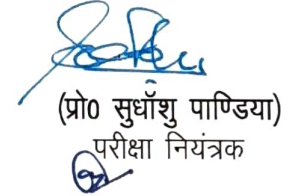 (प्रो0 सुधॉशु पाण्डिया)
परीक्षा नियंत्रक